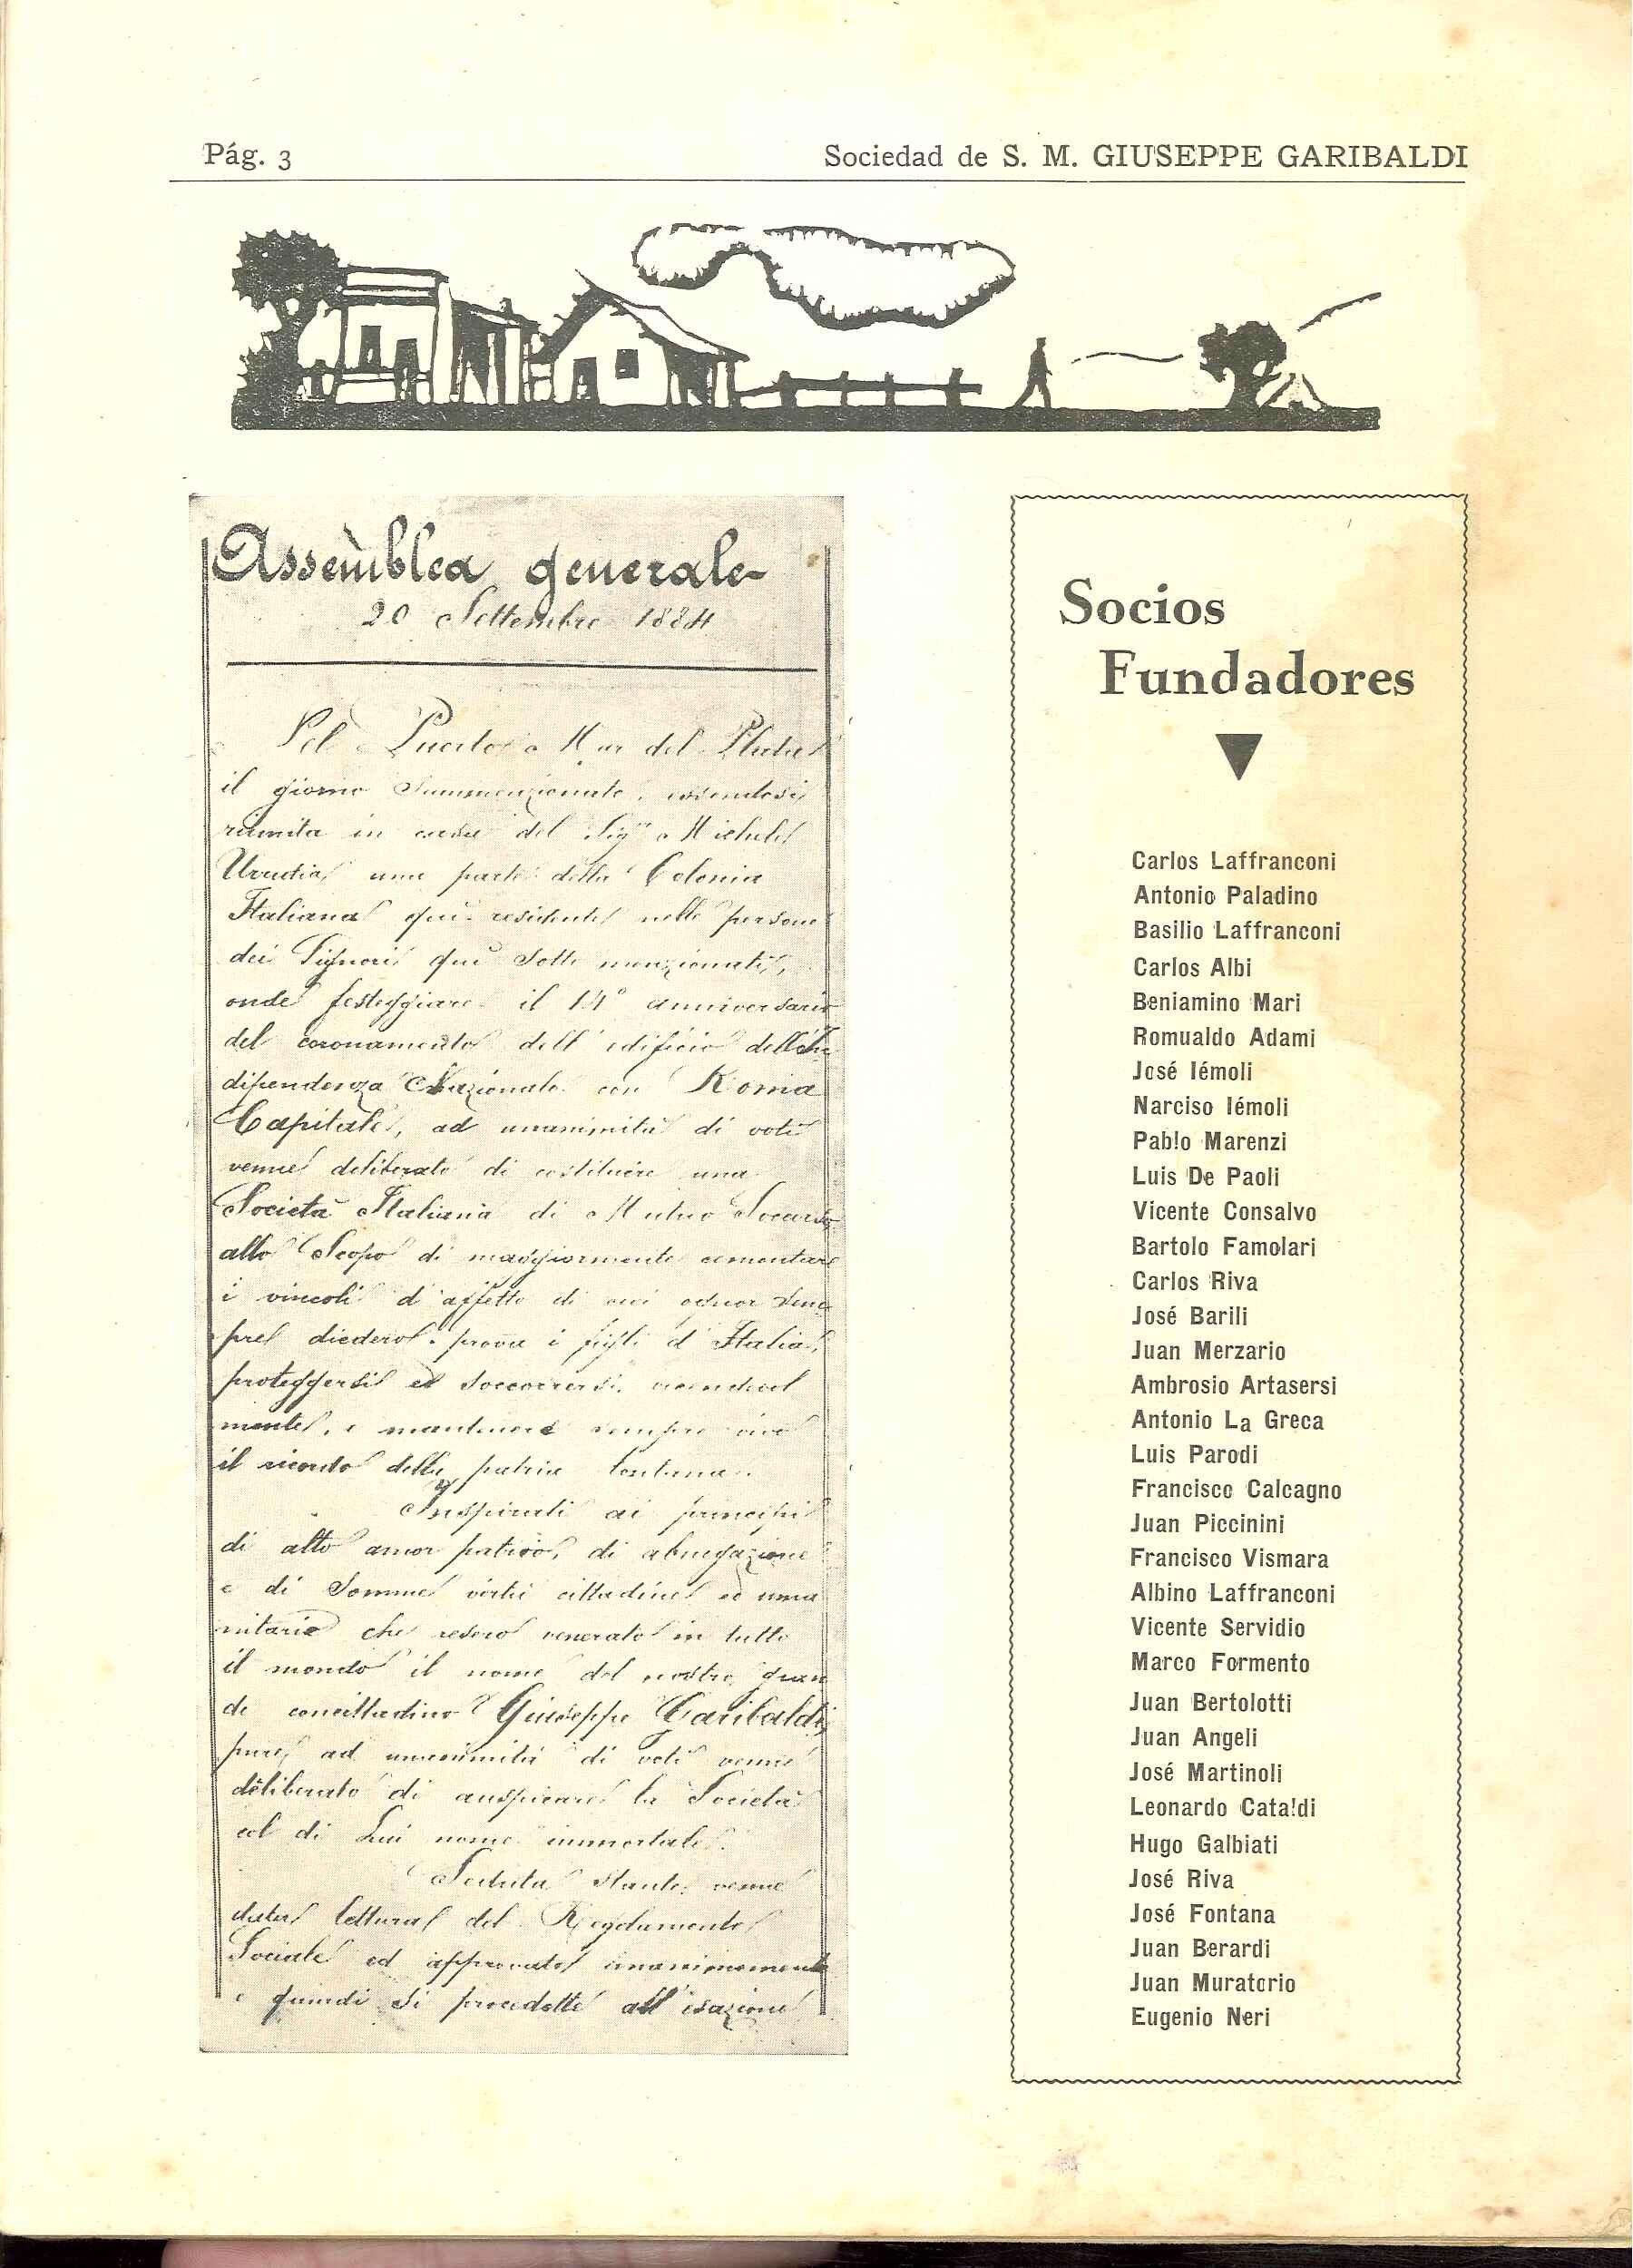 Pág. 3
Sociedad de S. M. GIUSEPPE GARIBALDI
Assemblea generale
20 Settembre 1884
Nel Puerto Mar del Plata
il giorno summenzionato, essendosi
riunita in casa del Sig.r Michele
Urrutia una parte della Colonia
Italiana qui residente nelle persone
dei Signori qui sotto menzionati,
onde festeggiare il 14° anniversario
del coronamento dell' edificio dell'In
dipendenza Nazionale con Roma
Capitale, ad unanimità di voti
venne deliberato di costituire una
Società Italiana di Mutuo Socorso
allo Scopo di maggiormente cementare
i vincoli d'affetto di cui ognor sem
pre diedero prova i figli d'Italia,
proteggersi e soccorrersi vicendevol
mente, e mantenere sempre vivo
il ricordo della patria lontana.
Inspirati ai principii
di alto amor patrio, di abnegazione
e di somme virtù cittadine ed uma
nitarie che resero venerato in tutto
il mondo il nome del nostro gran
de concittadino Giuseppe Garibaldi,
pure ad unanimità di voti venne
deliberato di auspicare la Società
col di Lui nome immortale.
Seduta stante, venne
data lettura del Regolamento
Sociale ed approvato unanimemente
e quindi si procedette all'
Socios
Fundadores
Carlos Laffranconi
Antonio Paladino
Basilio Laffranconi
Carlos Albi
Beniamino Mari
Romualdo Adami
José Iémoli
Narciso Iémoli
Pablo Marenzi
Luis De Paoli
Vicente Consalvo
Bartolo Famolari
Carlos Riva
José Barili
Juan Merzario
Ambrosio Artasersi
Antonio La Greca
Luis Parodi
Francisco Calcagno
Juan Piccinini
Francisco Vismara
Albino Laffranconi
Vicente Servidio
Marco Formento
Juan Bertolotti
Juan Angeli
José Martinoli
Leonardo Cataldi
Hugo Galbiati
José Riva
José Fontana
Juan Berardi
Juan Muratorio
Eugenio Neri